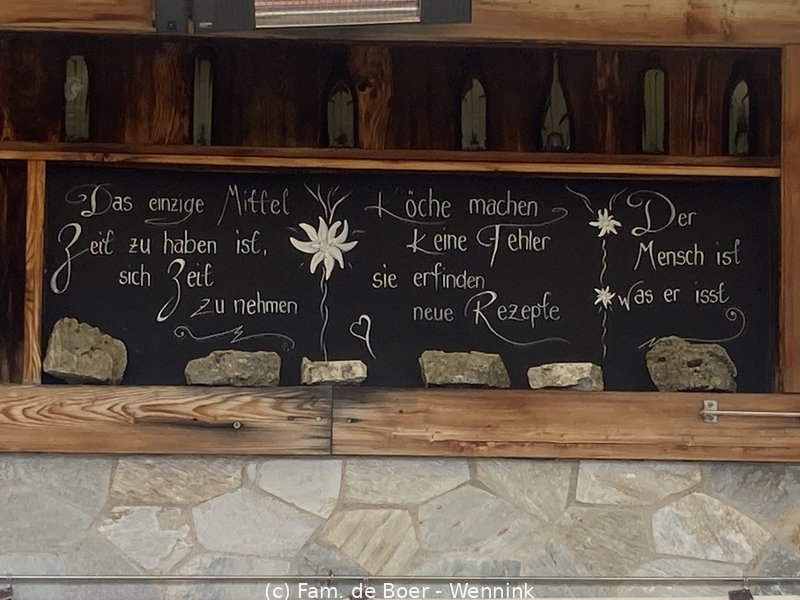 Das einzige Mittel
Zeit zu haben ist,
sich Zeit
zu nehmen
Köche machen
keine Fehler
sie erfinden
neue Rezepte
Der
Mensch ist
was er isst
(c) Fam. de Boer - Wennink